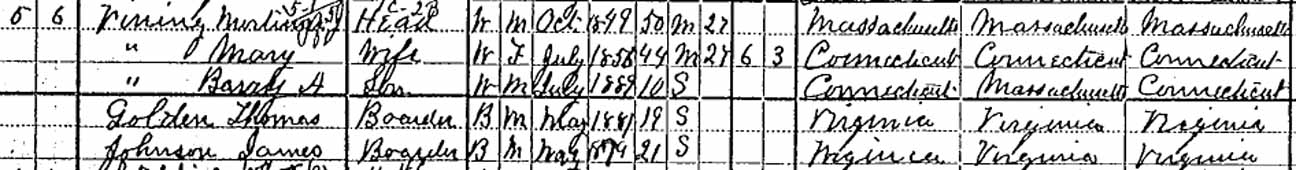 5 6 Vining Head W M Oct 1849 50 M 27 Massachusetts Massachusetts Massachusetts
" Mary Wife W F July 1856 44 M 27 6 3 Connecticut Connecticut Connecticut
" A Son W M July 1889 10 S Connecticut Massachusetts Connecticut
Golden Thomas Boarder B M May 1881 19 S Virginia Virginia Virginia
Johnson James Boarder B M May 1879 21 S Virginia Virginia Virginia